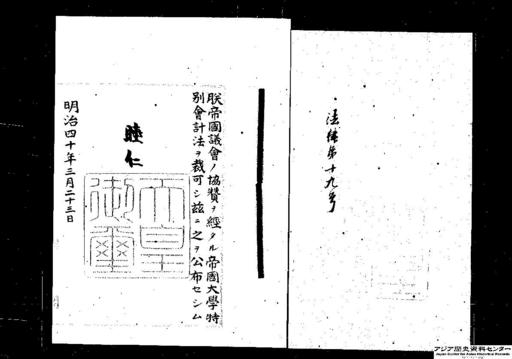 法律第十九号
朕帝國議會ノ協賛ヲ經タル帝國大學特
別會計法ヲ裁可シ茲ニ之ヲ公布セシム
睦仁
天皇
御璽
明治四十年三月二十三日
アジア歴史資料センター
Japan Center for Asian Historical Records